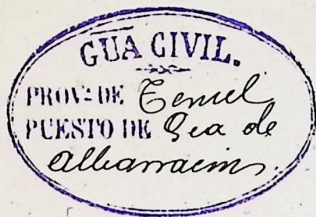 GUA CIVIL.
PROV.ᴬ DE Teruel
PUESTO DE Gea de
Albarracin.